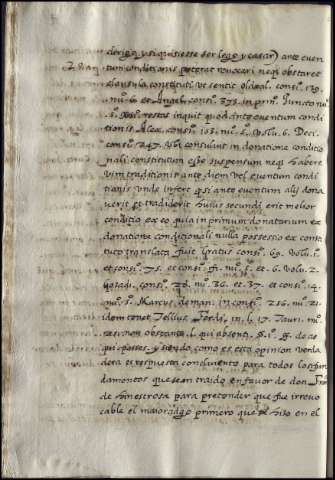 derigo, y si quisiesse ser lego y casar) ante euen
tum conditionis poterat reuocari neq; obstaret
clausula constituti ut sentit oldrad. consi. 139.
nu. 6. et Angel. consi. 373. in prin.
restos inquit quod ante euentum condi
tionis Alex. consi. 103. nu. volu. 6. Deci.
consi. 247. Ubi consulunt in donatione conditio
nali constitutum esse suspensum neq; habere
vim traditionis ante diem vel euentum condi
tionis unde infert q si ante euentum alij dona
uerit et tradiderit huius secundi erit melior
conditio ex eo quia in primum donatarium ex
donatione conditionali nulla possessio ex consti
tuto translata fuit gratus consi. 69. volu. 1.
et consi. 75. et consi. fi. nu. et. 6. volu. 2.
consi. 28. nu. 36. et 37. et consi. 4.
nu. Marcus de man. consi. 216. nu. 21.
idem tenet Tellus Ferdi. in. l. 17. Tauri. nu.
non obstante. l. qui absenti. ff. de ac
qui. posses. y siendo como es esta opinion verda
dera es respuesta concluyente para todos los fun
damentos que sean traido en fauor de don
de hinestrosa para pretender que fue irreuo
cable el maioradgo primero que se hizo en el